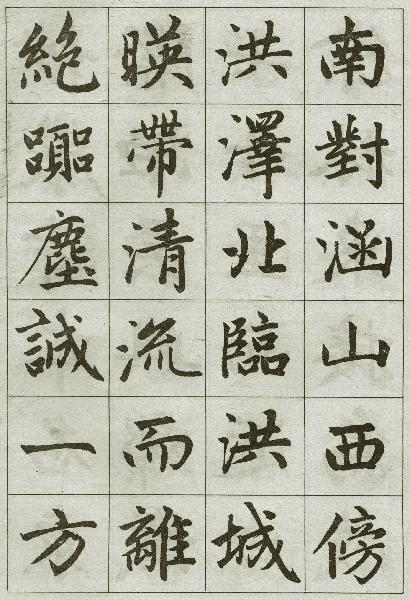 南對涵山西傍
洪澤北臨洪城
暎帶清流而離
絕囂塵誠一方